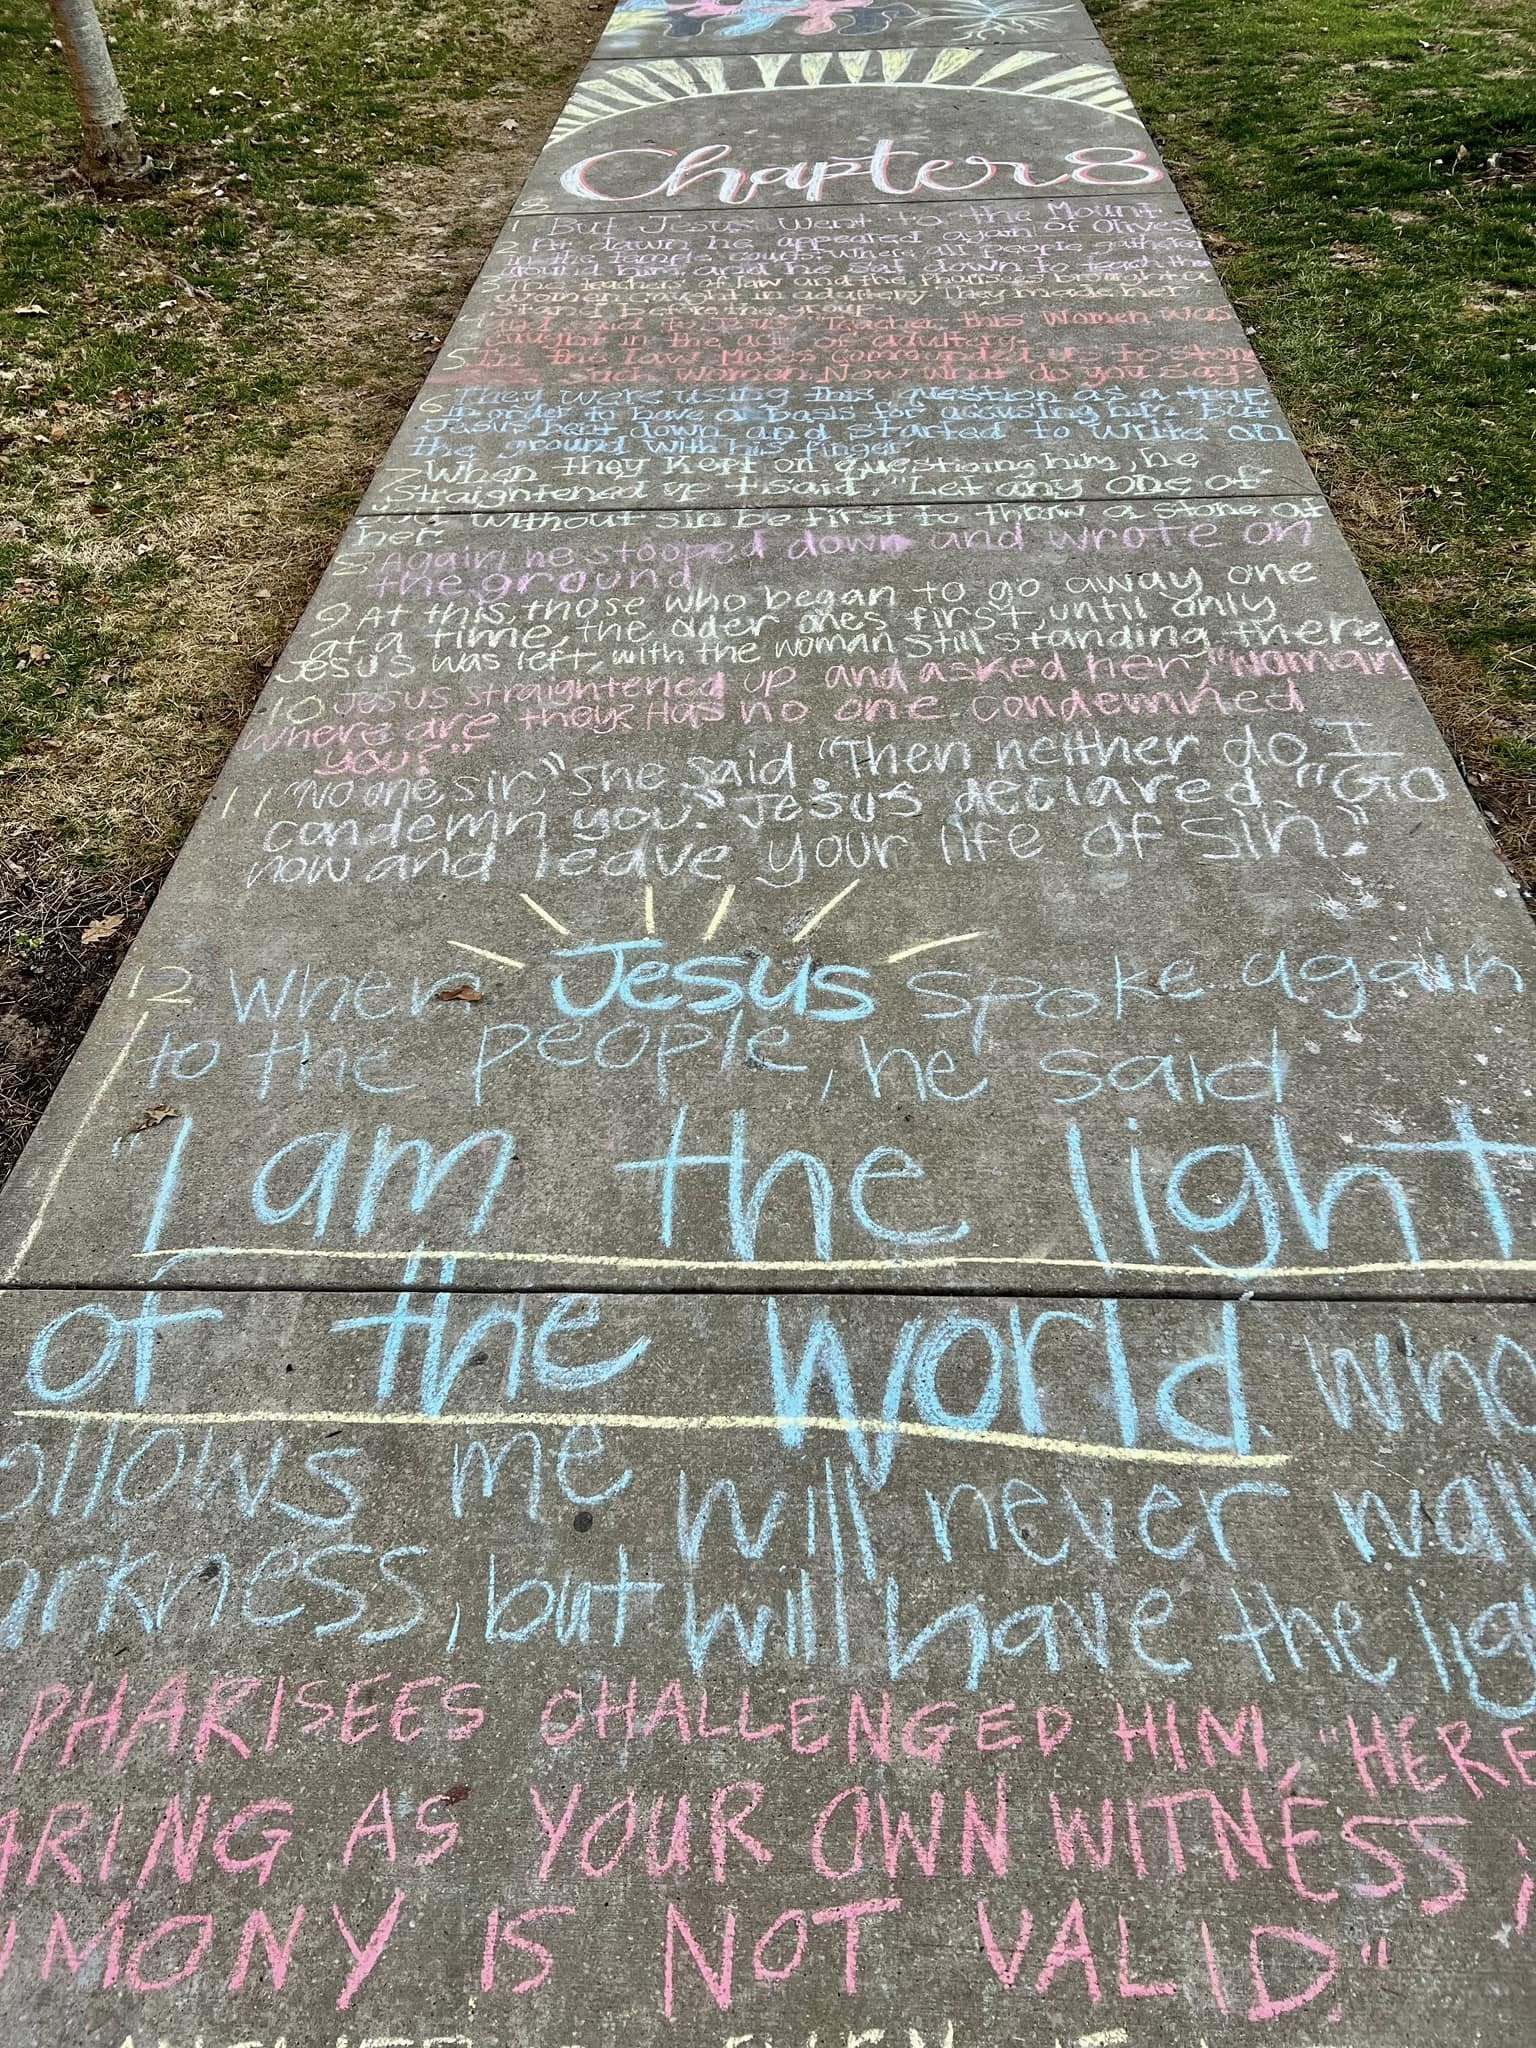 Chapter 8
1 But Jesus went to the Mount
of Olives
2 At dawn he appeared again
in the temple courts, where all people gathered
around him, and he sat down to teach the
3 The teachers of law and the Pharisees brought a
women caught in adultery They made her
stand before the group.
said to Jesus, Teacher, this Women was
caught in the act of adultery.
5 In the law Moses commanded us to stone
such women. Now what do you say?
6 They were using this question as a trap
in order to have a basis for accusing him But
Jesus bent down and started to write on
the ground with his finger
7 When they kept on questioning him, he
straightened up + said, "Let any one of
without sin be first to throw a stone at
her.
8 Again he stooped down and wrote on
the ground
9 At this, those who began to go away one
at a time, the older ones first, until only
Jesus was left, with the woman still standing there.
10 Jesus straightened up and asked her, "Woman
where are they? Has no one condemned
you?"
11 "No one, sir," she said "Then neither do I
condemn you." Jesus declared "Go
now and leave your life of sin."
12 When Jesus spoke again
to the people, he said
"I am the light
of the world. who
ollows me will never wal
arkness, but will have the lig
PHARISEES CHALLENGED HIM, "HERE
ARING AS YOUR OWN WITNESS;
MONY IS NOT VALID."